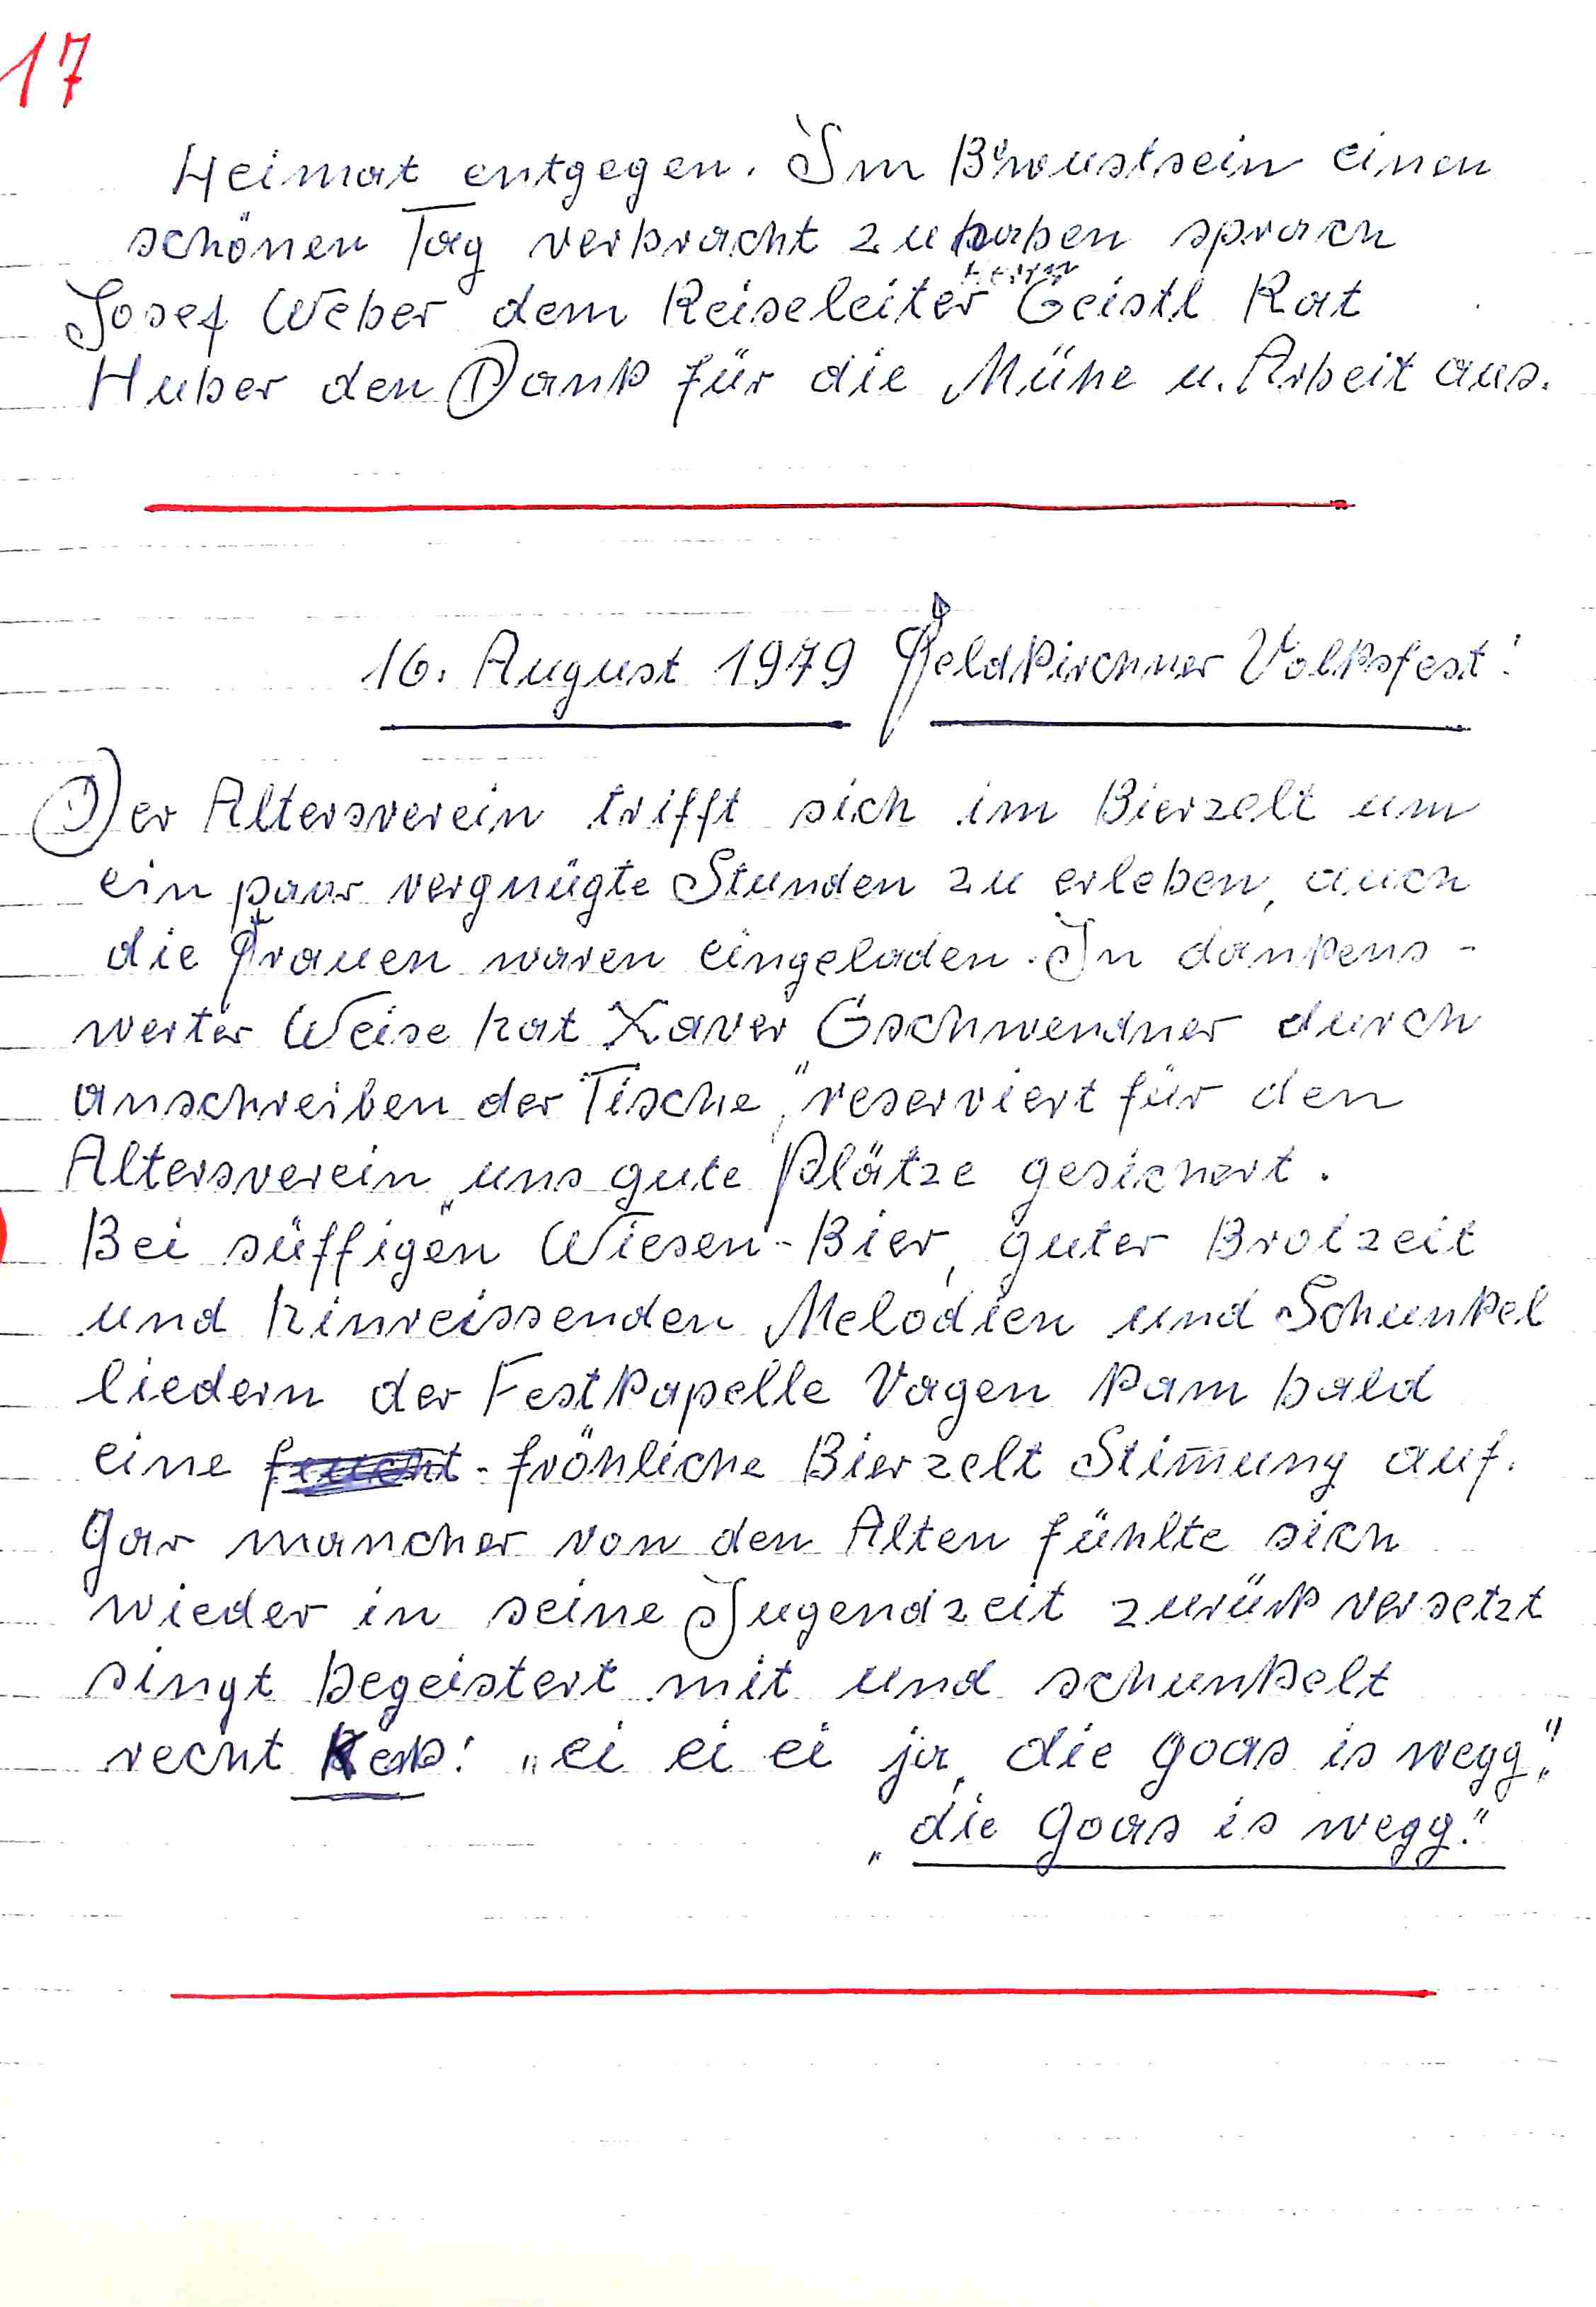 17
Heimat entgegen. Im Bewustsein einen
schönen Tag verbracht zu haben sprach
Josef Weber dem Reiseleiter Herrn Geistl Rat
Huber den Dank für die Mühe u. Arbeit aus.
16. August 1979 Feldkirchner Volksfest!
Der Altersverein trifft sich im Bierzelt um
ein paar vergnügte Stunden zu erleben, auch
die Frauen waren eingeladen. In dankens-
werter Weise hat Xaver Gschwendner durch
anschreiben der Tische, "reserviert für den
Altersverein„ uns gute Plätze gesichert.
Bei süffigen Wiesen-Bier, guter Brotzeit
und hinreissenden Melodien und Schunkel
liedern der Festkapelle Vagen kam bald
eine feucht-fröhliche Bierzelt Stim̅ung auf.
Gar mancher von den Alten fühlte sich
wieder in seine Jugendzeit zurük versetzt
singt begeistert mit und schunkelt
recht Kek! „ei ei ei ja, die Goas is wegg."
„die Goas is wegg."